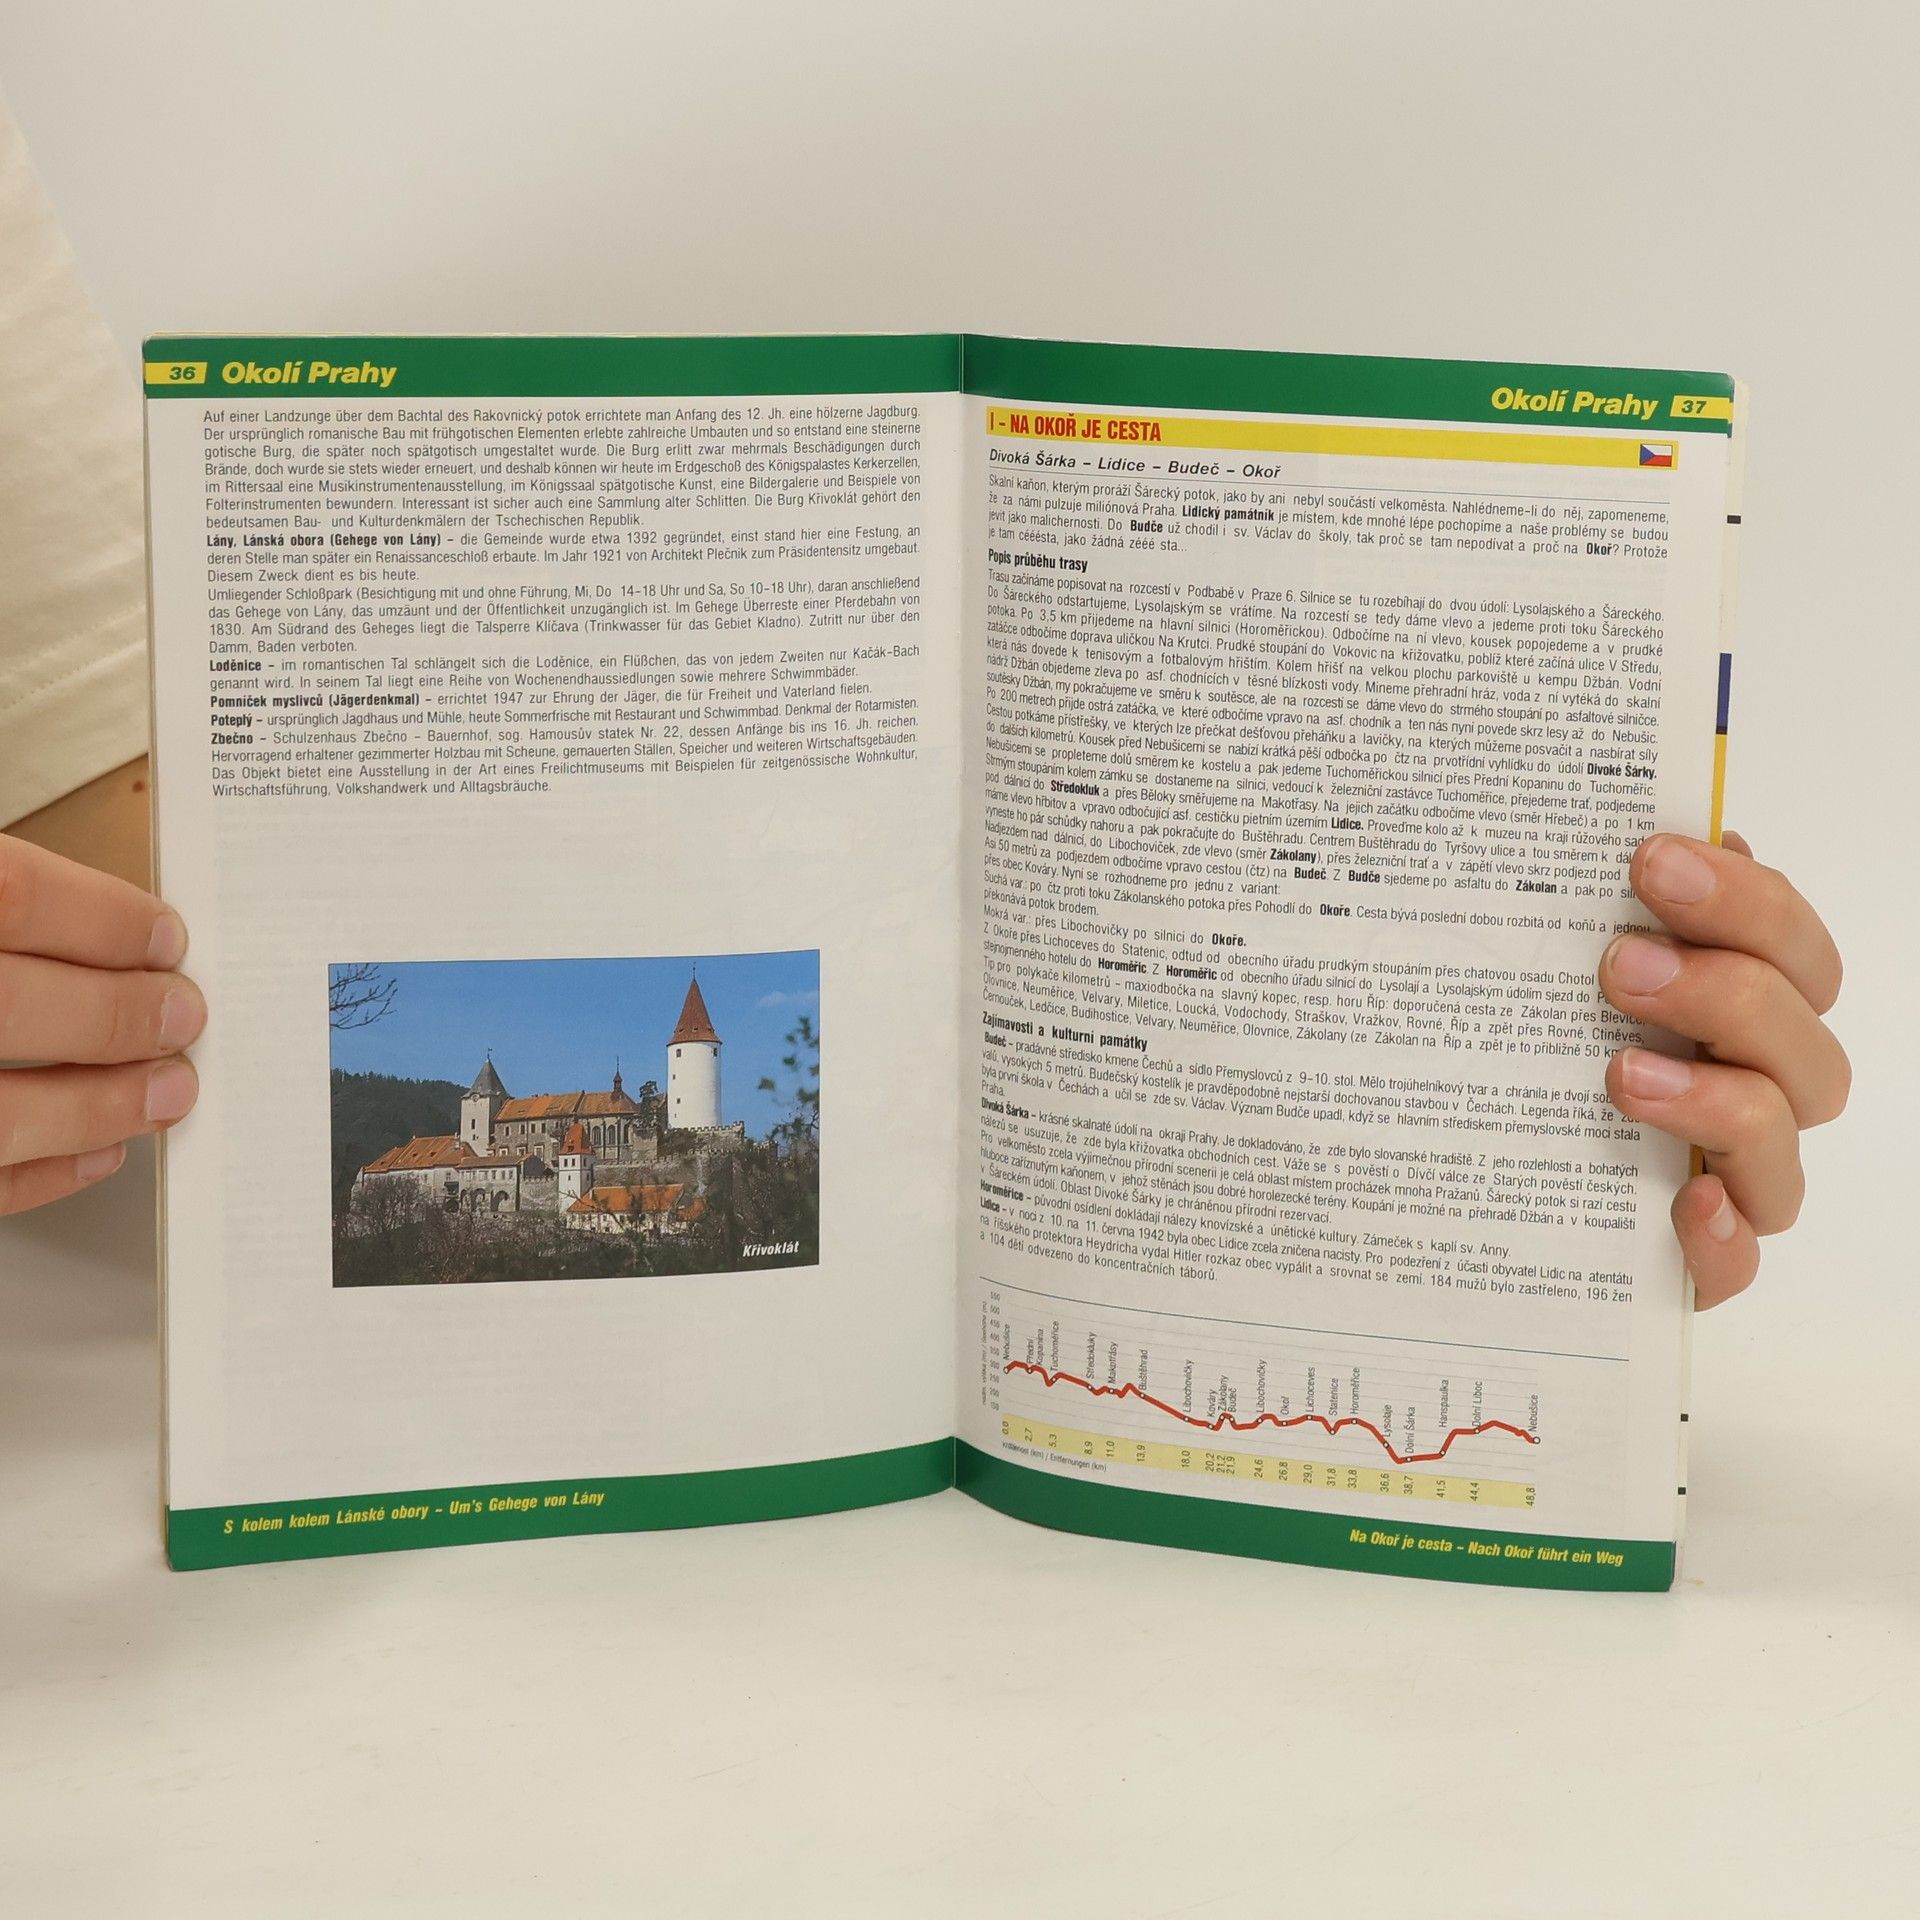 36 Okolí Prahy
Auf einer Landzunge über dem Bachtal des Rakovnický potok errichtete man Anfang des 12. Jh. eine hölzerne Jagdburg.
Der ursprünglich romanische Bau mit frühgotischen Elementen erlebte zahlreiche Umbauten und so entstand eine steinerne
gotische Burg, die später noch spätgotisch umgestaltet wurde. Die Burg erlitt zwar mehrmals Beschädigungen durch
Brände, doch wurde sie stets wieder erneuert, und deshalb können wir heute im Erdgeschoß des Königspalastes Kerkerzellen,
im Rittersaal eine Musikinstrumentenausstellung, im Königssaal spätgotische Kunst, eine Bildergalerie und Beispiele von
Folterinstrumenten bewundern. Interessant ist sicher auch eine Sammlung alter Schlitten. Die Burg Křivoklát gehört den
bedeutsamen Bau- und Kulturdenkmälern der Tschechischen Republik.
Lány, Lánská obora (Gehege von Lány) – die Gemeinde wurde etwa 1392 gegründet, einst stand hier eine Festung, an
deren Stelle man später ein Renaissanceschloß erbaute. Im Jahr 1921 von Architekt Plečnik zum Präsidentensitz umgebaut.
Diesem Zweck dient es bis heute.
Umliegender Schloßpark (Besichtigung mit und ohne Führung, Mi, Do 14–18 Uhr und Sa, So 10–18 Uhr), daran anschließend
das Gehege von Lány, das umzäunt und der Öffentlichkeit unzugänglich ist. Im Gehege Überreste einer Pferdebahn von
1830. Am Südrand des Geheges liegt die Talsperre Klíčava (Trinkwasser für das Gebiet Kladno). Zutritt nur über den
Damm, Baden verboten.
Loděnice – im romantischen Tal schlängelt sich die Loděnice, ein Flüßchen, das von jedem Zweiten nur Kačák-Bach
genannt wird. In seinem Tal liegt eine Reihe von Wochenendhaussiedlungen sowie mehrere Schwimmbäder.
Pomníček myslivců (Jägerdenkmal) – errichtet 1947 zur Ehrung der Jäger, die für Freiheit und Vaterland fielen.
Poteplý – ursprünglich Jagdhaus und Mühle, heute Sommerfrische mit Restaurant und Schwimmbad. Denkmal der Rotarmisten.
Zbečno – Schulzenhaus Zbečno – Bauernhof, sog. Hamousův statek Nr. 22, dessen Anfänge bis ins 16. Jh. reichen.
Hervorragend erhaltener gezimmerter Holzbau mit Scheune, gemauerten Ställen, Speicher und weiteren Wirtschaftsgebäuden.
Das Objekt bietet eine Ausstellung in der Art eines Freilichtmuseums mit Beispielen für zeitgenössische Wohnkultur,
Wirtschaftsführung, Volkshandwerk und Alltagsbräuche.
Křivoklát
S kolem kolem Lánské obory – Um's Gehege von Lány
Okolí Prahy 37
I - NA OKOŘ JE CESTA
Divoká Šárka – Lidice – Budeč – Okoř
Skalní kaňon, kterým proráží Šárecký potok, jako by ani nebyl součástí velkoměsta. Nahlédneme-li do něj, zapomeneme,
že za námi pulzuje miliónová Praha. Lidický památník je místem, kde mnohé lépe pochopíme a naše problémy se budou
jevit jako malichernosti. Do Budče už chodil i sv. Václav do školy, tak proč se tam nepodívat a proč na Okoř? Protože
je tam cééésta, jako žádná zééé sta...
Popis průběhu trasy
Trasu začínáme popisovat na rozcestí v Podbabě v Praze 6. Silnice se tu rozebíhají do dvou údolí: Lysolajského a Šáreckého.
Do Šáreckého odstartujeme, Lysolajským se vrátíme. Na rozcestí se tedy dáme vlevo a jedeme proti toku Šáreckého
potoka. Po 3,5 km přijedeme na hlavní silnici (Horoměřickou). Odbočíme na ní vlevo, kousek popojedeme a v prudké
zatáčce odbočíme doprava uličkou Na Krutci. Prudké stoupání do Vokovic na křižovatku, poblíž které začíná ulice V Středu,
která nás dovede k tenisovým a fotbalovým hřištím. Kolem hřišť na velkou plochu parkoviště u kempu Džbán. Vodní
nádrž Džbán objedeme zleva po asf. chodnících v těsné blízkosti vody. Mineme přehradní hráz, voda z ní vytéká do skalní
soutěsky Džbán, my pokračujeme ve směru k soutěsce, ale na rozcestí se dáme vlevo do strmého stoupání po asfaltové silničce.
Po 200 metrech přijde ostrá zatáčka, ve které odbočíme vpravo na asf. chodník a ten nás nyní povede skrz lesy až do Nebušic.
Cestou potkáme přístřešky, ve kterých lze přečkat dešťovou přeháňku a lavičky, na kterých můžeme posvačit a nasbírat síly
do dalších kilometrů. Kousek před Nebušicemi se nabízí krátká pěší odbočka po čtz na prvotřídní vyhlídku do údolí Divoké Šárky.
Nebušicemi se propleteme dolů směrem ke kostelu a pak jedeme Tuchoměřickou silnicí přes Přední Kopaninu do Tuchoměřic.
Strmým stoupáním kolem zámku se dostaneme na silnici, vedoucí k železniční zastávce Tuchoměřice, přejedeme trať, podjedeme
pod dálnicí do Středokluk a přes Běloky směřujeme na Makotřasy. Na jejich začátku odbočíme vlevo (směr Hřebeč) a po 1 km
máme vlevo hřbitov a vpravo odbočující asf. cestičku pietním územím Lidice. Proveďme kolo až k muzeu na kraji růžového sadu,
vyneste ho pár schůdky nahoru a pak pokračujte do Buštěhradu. Centrem Buštěhradu do Tyršovy ulice a tou směrem k
Nadjezdem nad dálnicí, do Libochoviček, zde vlevo (směr Zákolany), přes železniční trať a v zápětí vlevo skrz podjezd pod
Asi 50 metrů za podjezdem odbočíme vpravo cestou (čtz) na Budeč. Z Budče sjedeme po asfaltu do Zákolan a pak po
přes obec Kováry. Nyní se rozhodneme pro jednu z variant:
Suchá var.: po čtz proti toku Zákolanského potoka přes Pohodlí do Okoře. Cesta bývá poslední dobou rozbitá od koňů a jednou
překonává potok brodem.
Mokrá var.: přes Libochovičky po silnici do Okoře.
Z Okoře přes Lichoceves do Statenic, odtud od obecního úřadu prudkým stoupáním přes chatovou osadu Chotol
stejnojmenného hotelu do Horoměřic. Z Horoměřic od obecního úřadu silnicí do Lysolají a Lysolajským údolím sjezd do
Tip pro polykače kilometrů – maxiodbočka na slavný kopec, resp. horu Říp: doporučená cesta ze Zákolan přes Blevice,
Olovnice, Neuměřice, Velvary, Miletice, Loucká, Vodochody, Straškov, Vražkov, Rovné, Říp a zpět přes Rovné, Ctiněves,
Černouček, Ledčice, Budihostice, Velvary, Neuměřice, Olovnice, Zákolany (ze Zákolan na Říp a zpět je to přibližně 50 km
Zajímavosti a kulturní památky
Budeč – pradávné středisko kmene Čechů a sídlo Přemyslovců z 9–10. stol. Mělo trojúhelníkový tvar a chránila je dvojí
valů, vysokých 5 metrů. Budečský kostelík je pravděpodobně nejstarší dochovanou stavbou v Čechách. Legenda říká, že
byla první škola v Čechách a učil se zde sv. Václav. Význam Budče upadl, když se hlavním střediskem přemyslovské moci stala
Praha.
Divoká Šárka – krásné skalnaté údolí na okraji Prahy. Je dokladováno, že zde bylo slovanské hradiště. Z jeho rozlehlosti a bohatých
nálezů se usuzuje, že zde byla křižovatka obchodních cest. Váže se s pověstí o Dívčí válce ze Starých pověstí českých.
Pro velkoměsto zcela výjimečnou přírodní scenerii je celá oblast místem procházek mnoha Pražanů. Šárecký potok si razí cestu
hluboce zaříznutým kaňonem, v jehož stěnách jsou dobré horolezecké terény. Koupání je možné na přehradě Džbán a v koupališti
v Šáreckém údolí. Oblast Divoké Šárky je chráněnou přírodní rezervací.
Horoměřice – původní osídlení dokládají nálezy knovízské a únětické kultury. Zámeček s kaplí sv. Anny.
Lidice – v noci z 10. na 11. června 1942 byla obec Lidice zcela zničena nacisty. Pro podezření z účasti obyvatel Lidic na atentátu
na říšského protektora Heydricha vydal Hitler rozkaz obec vypálit a srovnat se zemí. 184 mužů bylo zastřeleno, 196 žen
a 104 dětí odvezeno do koncentračních táborů.
550
500
450
400
350
300
250
200
150
Nebušice
Přední Kopanina
Tuchoměřice
Středokluky
Makotřasy
Buštěhrad
Libochovičky
Kováry
Zákolany
Budeč
Libochovičky
Okoř
Lichoceves
Statenice
Horoměřice
Lysolaje
Dolní Šárka
Hanspaulka
Dolní Liboc
Nebušice
0,0 2,7 5,3 8,9 11,0 13,9 18,0 20,2 21,2 21,9 24,6 26,8 29,0 31,8 33,8 36,6 38,7 41,5 44,4 48,8
vzdálenost (km) / Entfernungen (km)
Na Okoř je cesta – Nach Okoř führt ein Weg